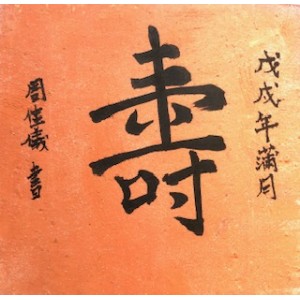 戊戌年蒲月
壽
周佳儀書